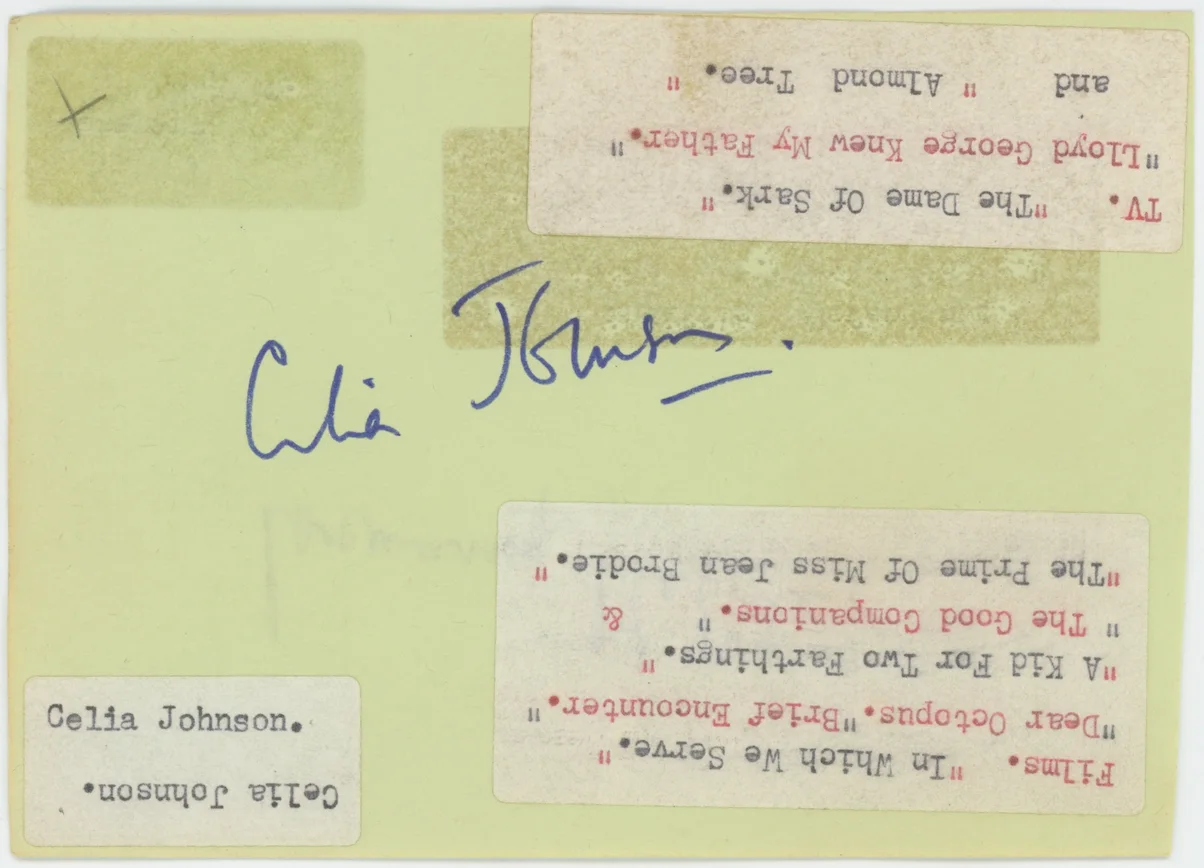 TV. "The Dame Of Sark."
"Lloyd George Knew My Father."
and " Almond Tree. "
Celia Johnson.
Films. "In Which We Serve."
"Dear Octopus."Brief Encounter."
"A Kid For Two Farthings."
" The Good Companions. " &
"The Prime Of Miss Jean Brodie."
Celia Johnson.
Celia Johnson.